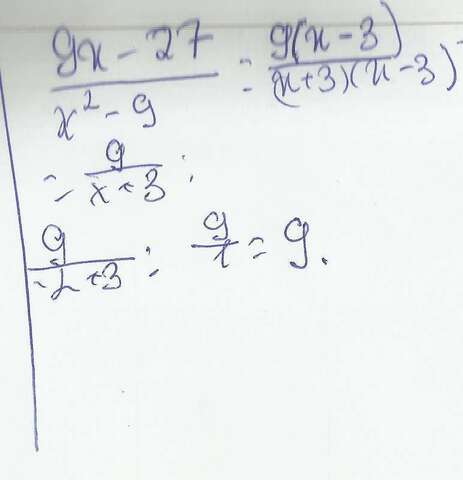 (9x - 27)/(x² - 9) = 9(x - 3)/((x+3)(x-3))
= 9/(x+3) ;
9/(-2+3) = 9/1 = 9.